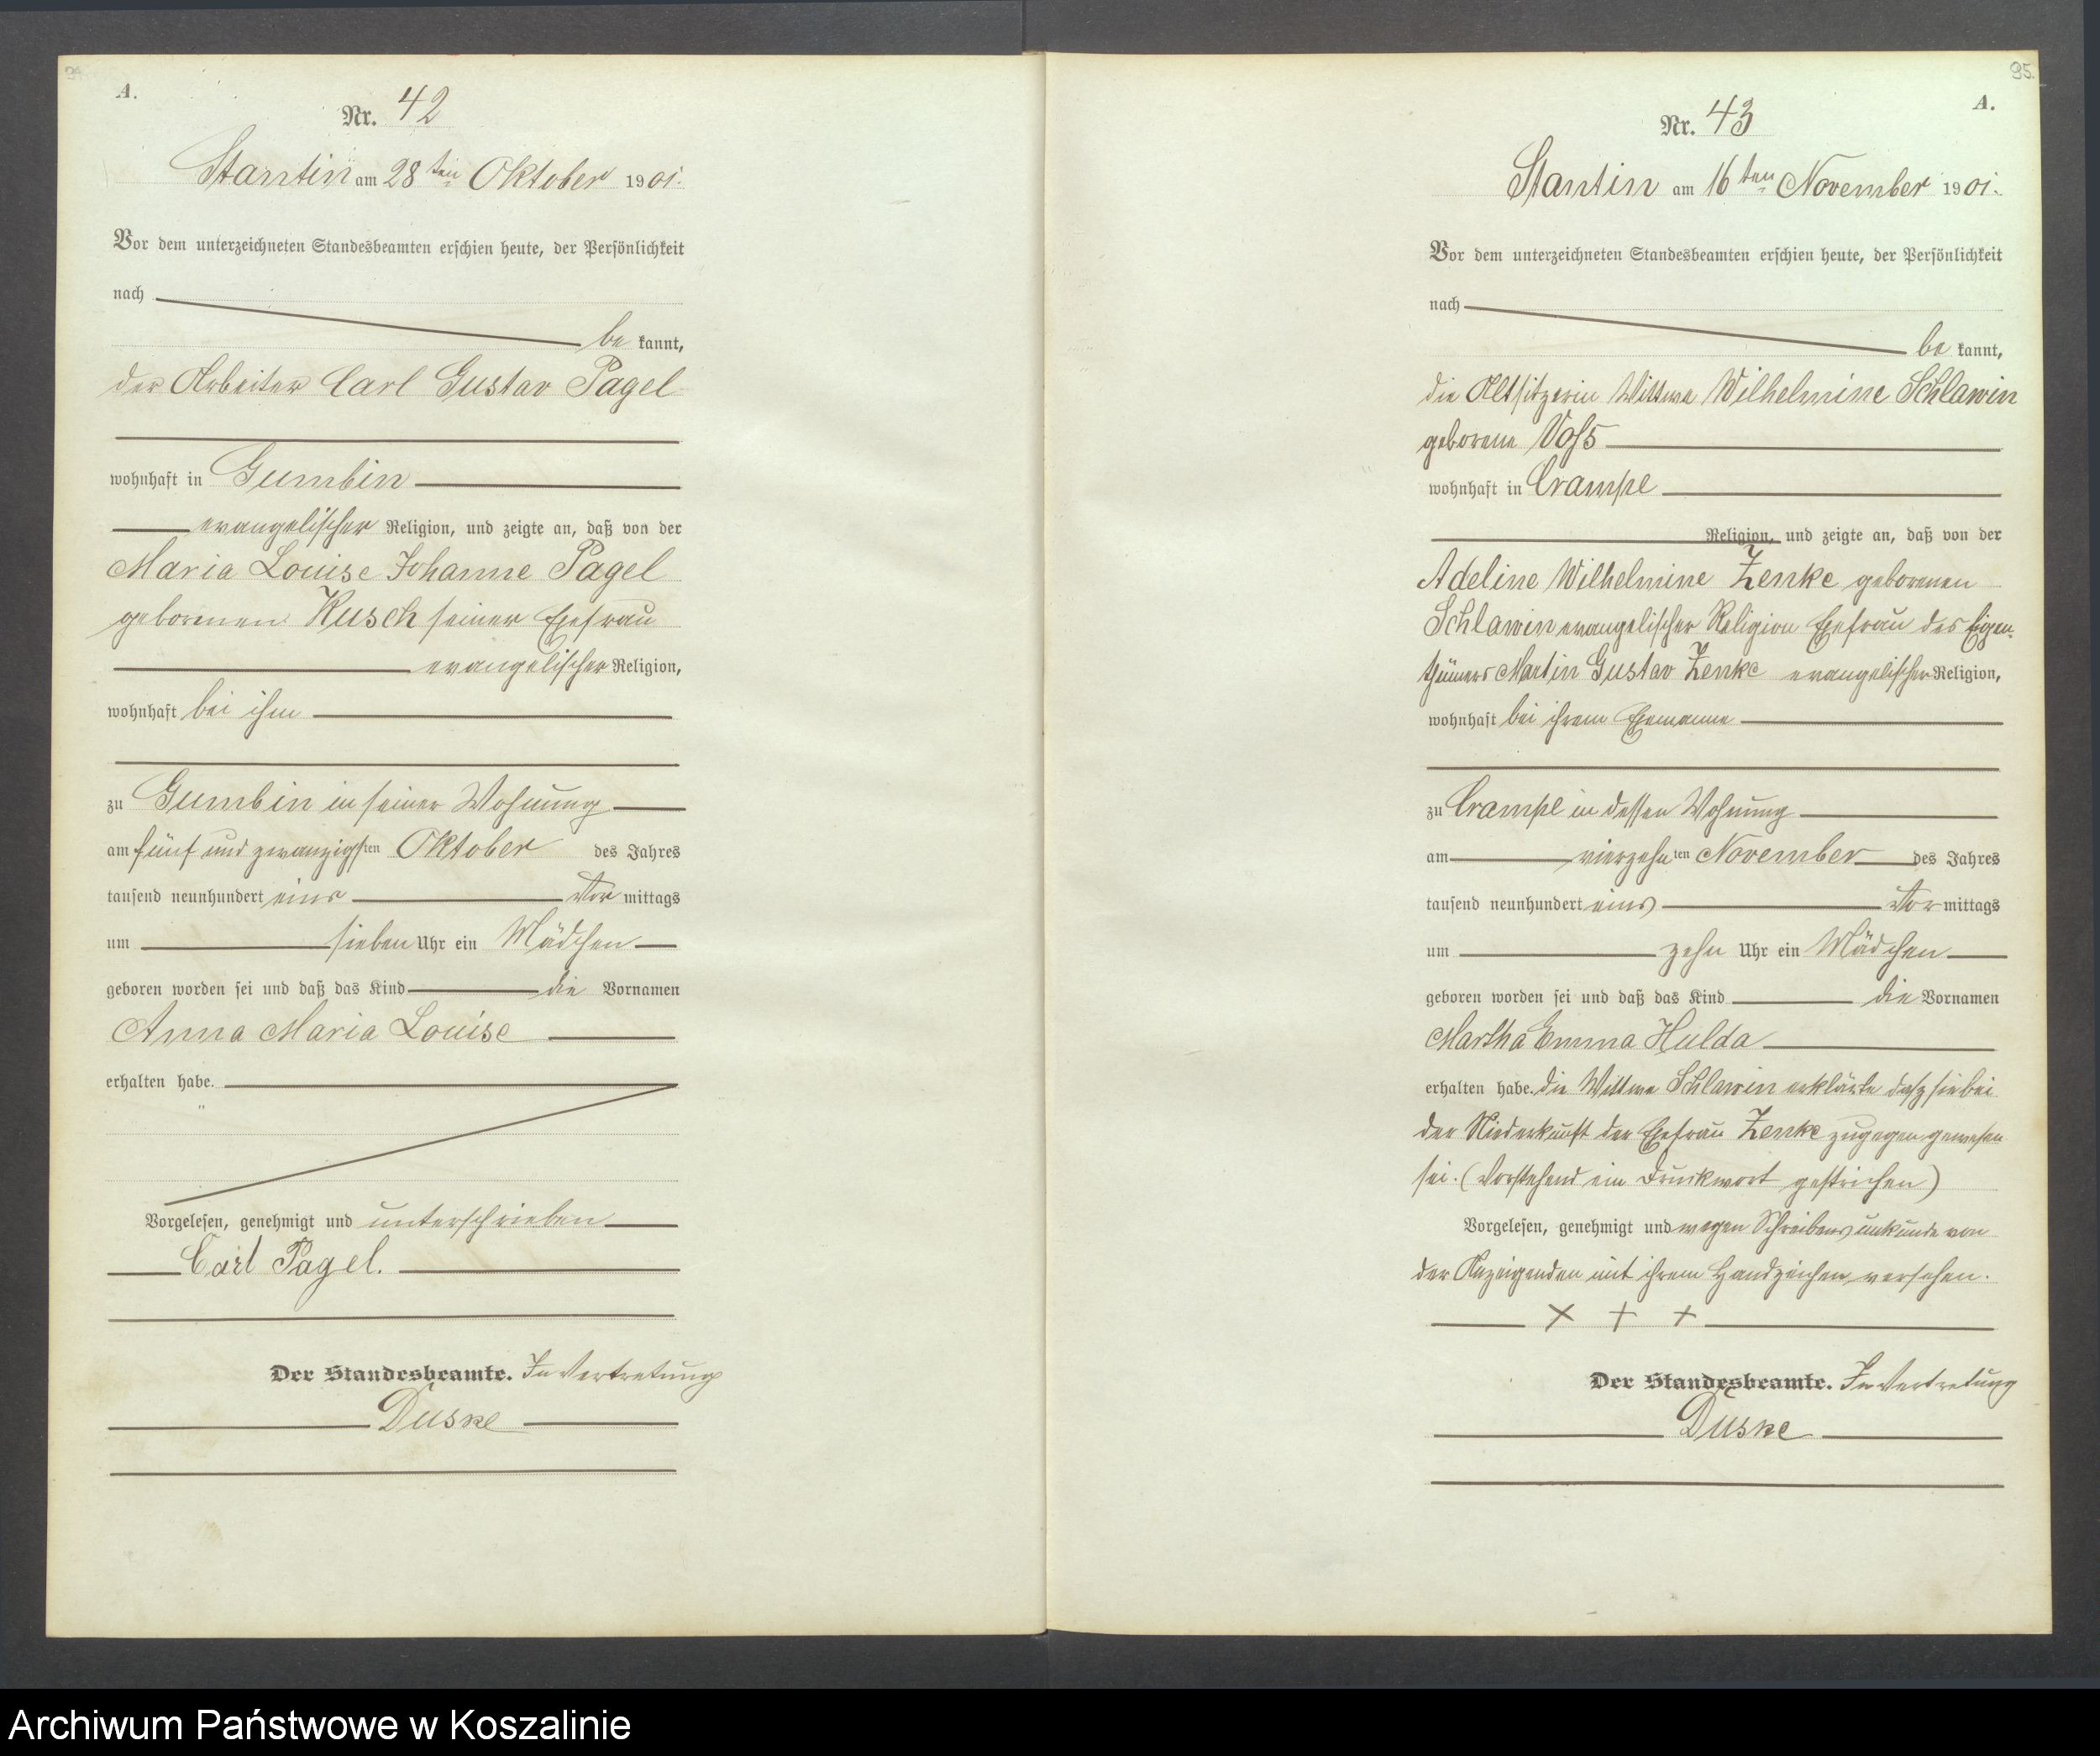 94
A.
Nr. 42
Stantin am 28ten Oktober 1901.
Vor dem unterzeichneten Standesbeamten erschien heute, der Persönlichkeit
nach
be kannt,
der Arbeiter Carl Gustav Pagel
wohnhaft in Gumbin
evangelischer Religion, und zeigte an, daß von der
Maria Louise Johanne Pagel
gebornen Kusch seiner Ehefrau
evangelischer Religion,
wohnhaft bei ihm
zu Gumbin in seiner Wohnung
am fünf und zwanzigsten Oktober des Jahres
tausend neunhundert eins Vor mittags
um sieben Uhr ein Mädchen
geboren worden sei und daß das Kind die Vornamen
Anna Maria Louise
erhalten habe.
Vorgelesen, genehmigt und unterschrieben
Carl Pagel.
Der Standesbeamte. In Vertretung
Duske
95.
A.
Nr. 43
Stantin am 16ten November 1901.
Vor dem unterzeichneten Standesbeamten erschien heute, der Persönlichkeit
nach
be kannt,
die Altsitzerin Wittwe Wilhelmine Schlawin
geborene Voß
wohnhaft in Crampe
Religion, und zeigte an, daß von der
Adeline Wilhelmine Zenke geborenen
Schlawin evangelischer Religion Ehefrau des Eigen-
thümers Martin Gustav Zenke evangelischer Religion,
wohnhaft bei ihrem Ehemanne
zu Crampe in dessen Wohnung
am vierzehnten November des Jahres
tausend neunhundert eins Vor mittags
um zehn Uhr ein Mädchen
geboren worden sei und daß das Kind die Vornamen
Martha Emma Hulda
erhalten habe. Die Wittwe Schlawin erklärte daß sie bei
der Niederkunft der Ehefrau Zenke zugegen gewesen
sei. (Vorstehend ein Druckwort gestrichen)
Vorgelesen, genehmigt und wegen Schreibensunkunde von
der Anzeigenden mit ihrem Handzeichen versehen.
× + +
Der Standesbeamte. In Vertretung
Duske
Archiwum Państwowe w Koszalinie